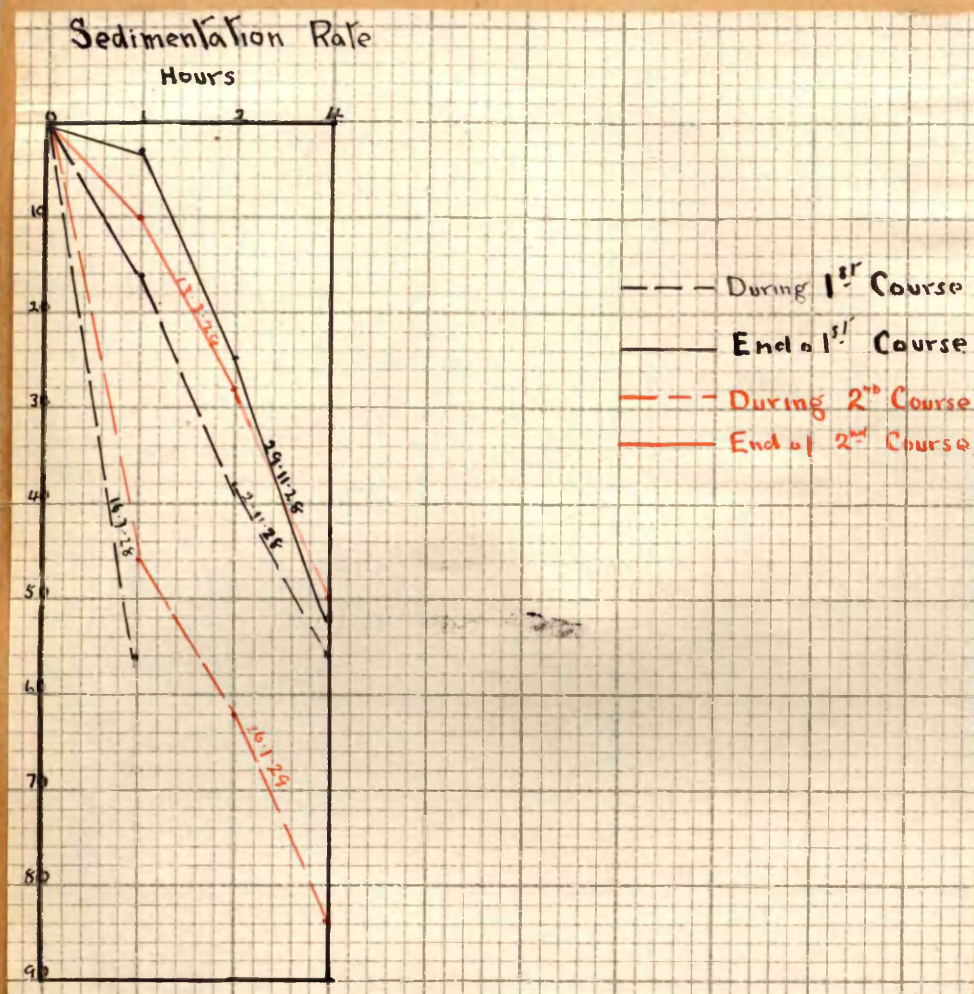 Sedimentation Rate
Hours
0 1 2 4
10
20
30
40
50
60
70
80
90
13.3.29
29.11.28
2.11.28
16.7.28
26.1.29
During 1st Course
End o 1st Course
During 2nd Course
End of 2nd Course